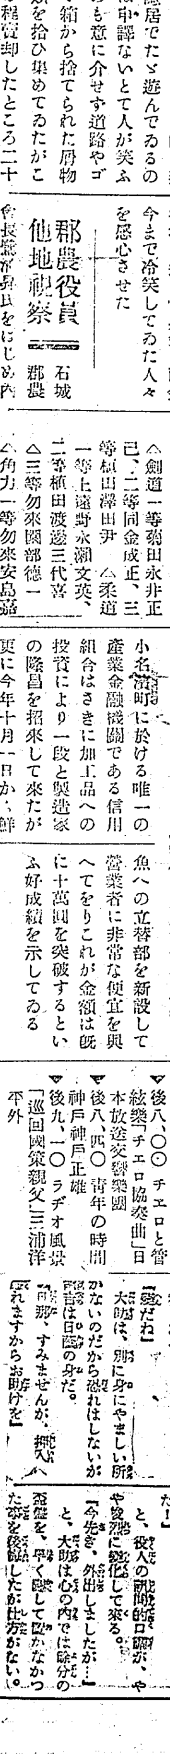 隠居でたゞ遊んでゐるの
は申譯ないとて人が笑ふ
のも意に介せず道路やゴ
箱から捨てられた屑物
を拾ひ集めてゐたがこ
程賣却したところ二十
今まで冷笑してゐた人々
を感心させた
郡農役員
他地視察
石城
郡農
會長鷺 氏をはじめ内
△劍道一等菊田永非正
己、二等同金成正、三
等植田澤田尹 △柔道
一等上遠野永瀬文英、
二等植田渡邊三代喜
△三等勿來園部德一
△角力一等勿來安島嘉
小名濱町に於ける唯一の
産業金融機關である信用
組合はさきに加工品への
投資により一段と製造家
の隆昌を招來して來たが
更に今年十月一日から鮮
魚への立替部を新設して
營業者に非常な便宜を與
へてをりこれが金額は旣
に十萬圓を突破するとい
ふ好成績を示してゐる
▼後八、〇〇 チエロと管
絃樂「チエロ協奏曲」日
本放送交響樂團
▼後八、四〇 靑年の時間
神戸神戸正雄
▼後九、一〇 ラヂオ風景
「巡回國策親父」三浦洋
平外
「變だね」
大助は、別に身にやましい所
がないのだから恐れはしないが
は日蔭の身だ。
「旦那、すみませんが、押入へ
れますからお助けを」
た！」
と、役人の訊問的口調が、や
や峻烈に變化して來る。
「今先き、外出しましたが…」
と、大助は心の内では餘分の
を、早く して置かなかつ
た事を後悔したが仕方がない。